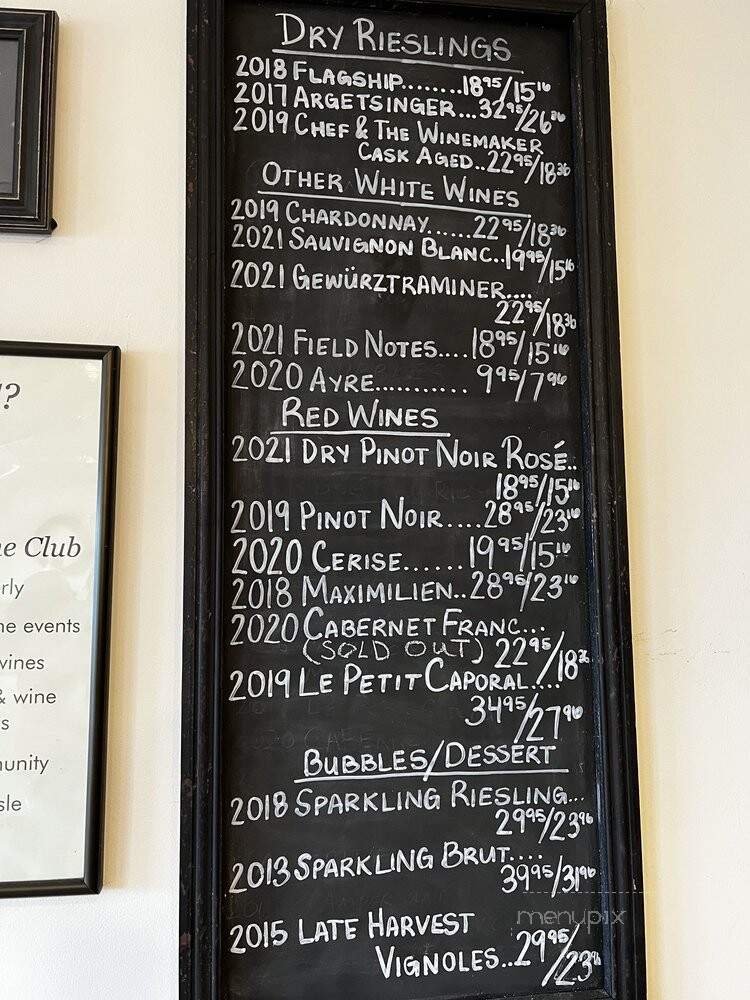 DRY RIESLINGS
2018 FLAGSHIP........18⁹⁵/15¹⁶
2017 ARGETSINGER...32⁹⁵/26³⁶
2019 CHEF & THE WINEMAKER
CASK AGED..22⁹⁵/18³⁶
OTHER WHITE WINES
2019 CHARDONNAY......22⁹⁵/18³⁶
2021 SAUVIGNON BLANC..19⁹⁵/15¹⁶
2021 GEWÜRZTRAMINER....
22⁹⁵/18³⁶
2021 FIELD NOTES....18⁹⁵/15¹⁶
2020 AYRE........... 9⁹⁵/7⁹⁶
RED WINES
2021 DRY PINOT NOIR ROSÉ..
18⁹⁵/15¹⁶
2019 PINOT NOIR.....28⁹⁵/23¹⁶
2020 CERISE......19⁹⁵/15¹⁶
2018 MAXIMILIEN..28⁹⁵/23¹⁶
2020 CABERNET FRANC...
(SOLD OUT) 22⁹⁵/18³⁶
2019 LE PETIT CAPORAL....
34⁹⁵/27⁹⁶
BUBBLES/DESSERT
2018 SPARKLING RIESLING...
29⁹⁵/23⁹⁶
2013 SPARKLING BRUT....
39⁹⁵/31⁹⁶
2015 LATE HARVEST
VIGNOLES..29⁹⁵/23⁹⁶
?
e Club
rly
ne events
wines
& wine
s
unity
sle
menupix